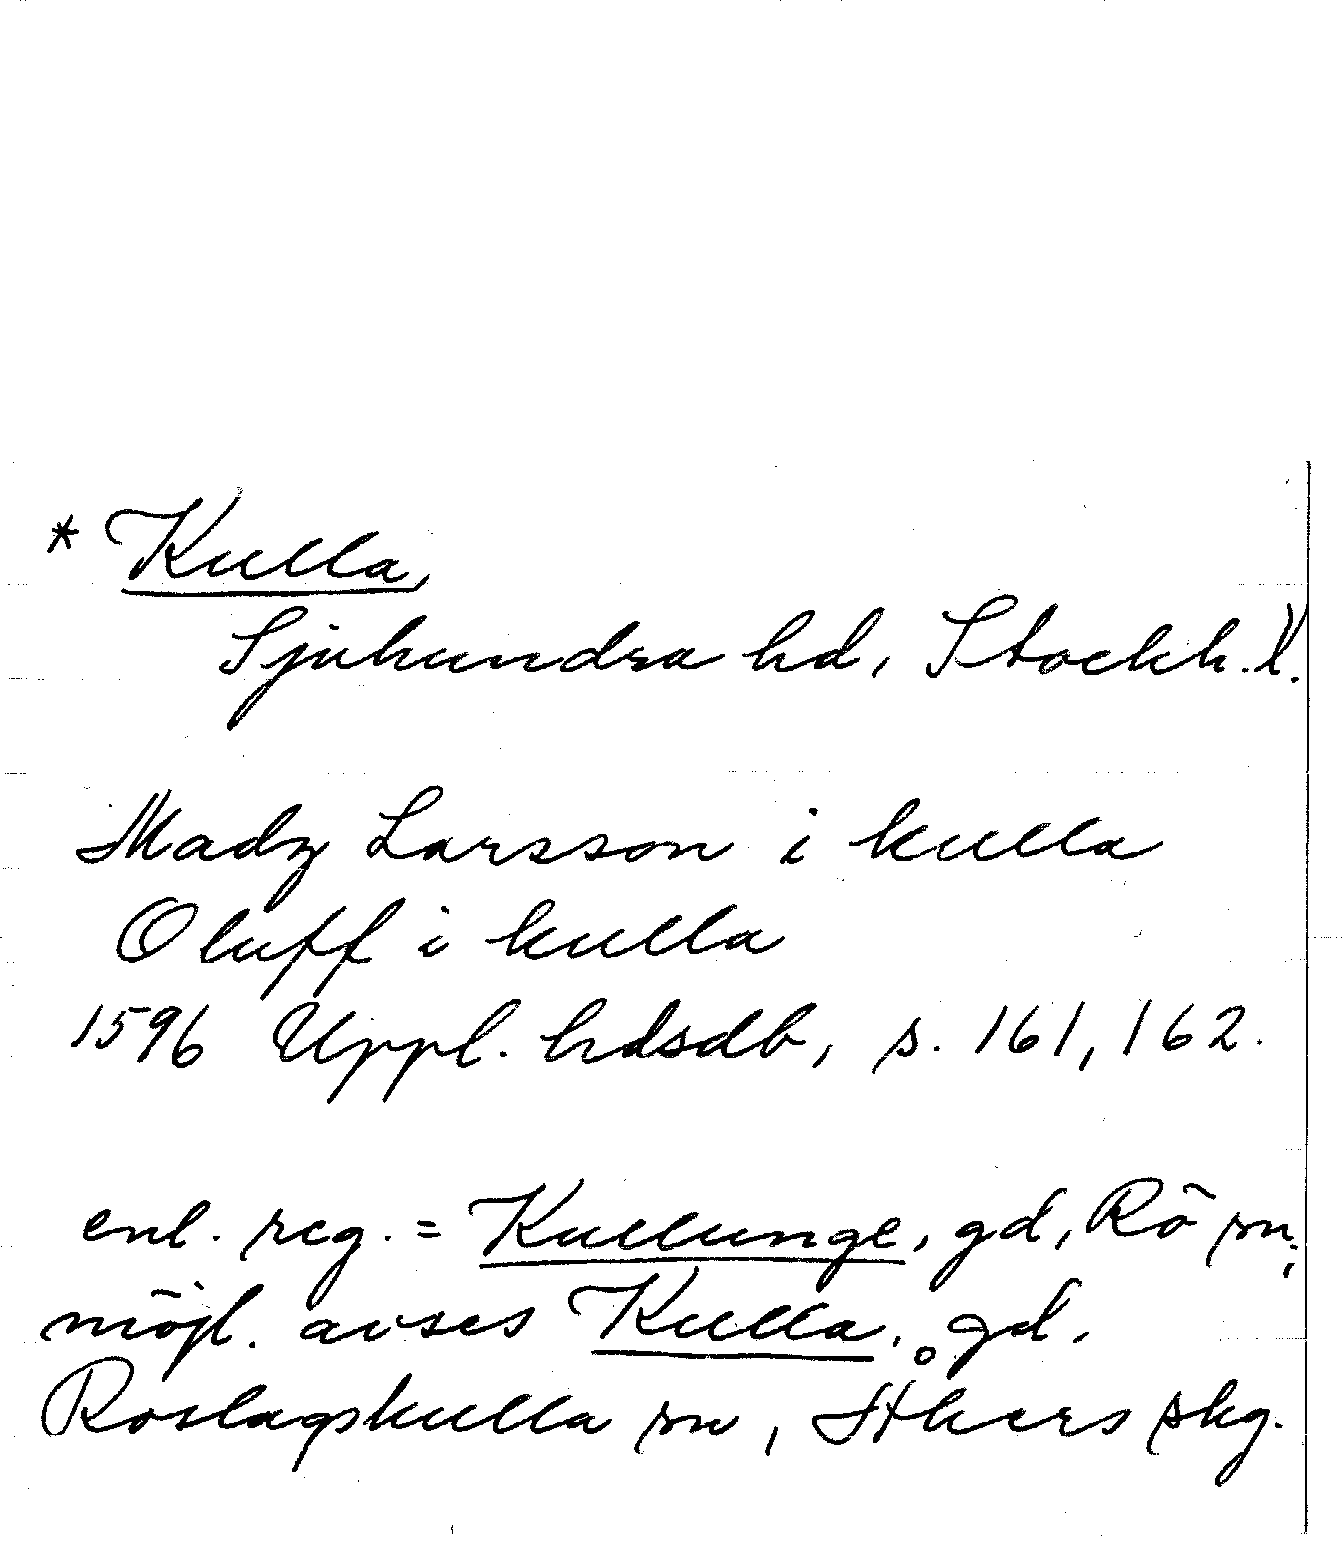 * Kulla,
Sjuhundra hd, Stockh. l.
Madz Larsson i kulla
Oluff i kulla
1596 Uppl. hdsdb, s. 161, 162.
enl. reg. = Kullunge, gd, Rö sn;
möjl. avses Kulla, gd,
Roslagskulla sn, Åkers skg.